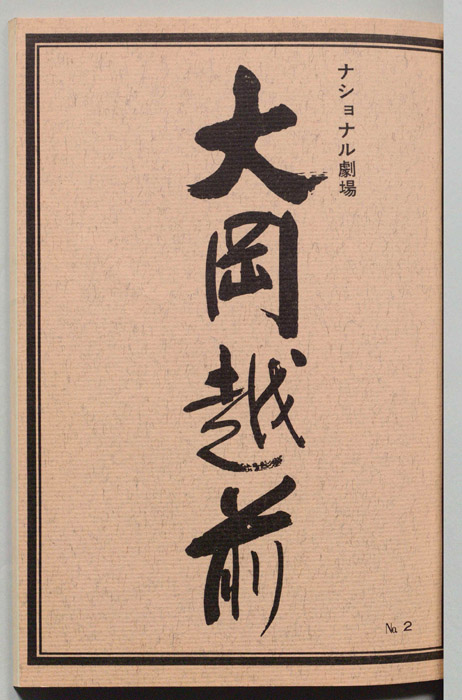 ナショナル劇場
大岡越前
No. 2